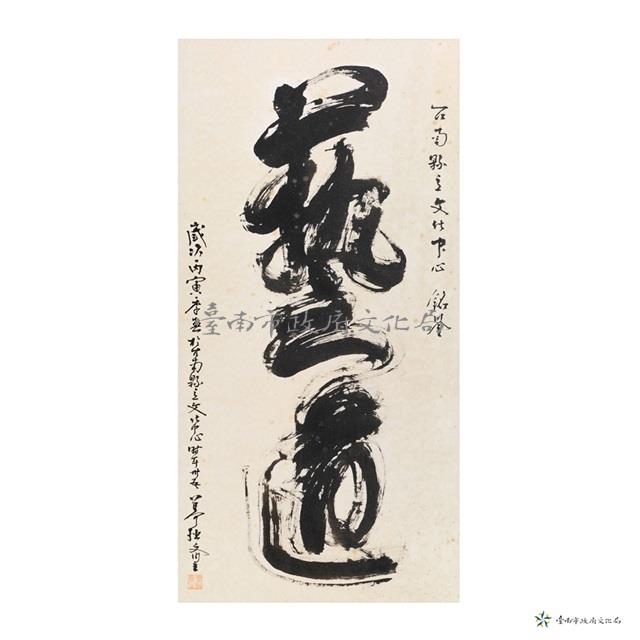 台南縣立文化中心 銘鑒
藝道
歲次丙寅年春於台南縣立文化中心時年卅
臺南市政府文化局
臺南市政府文化局